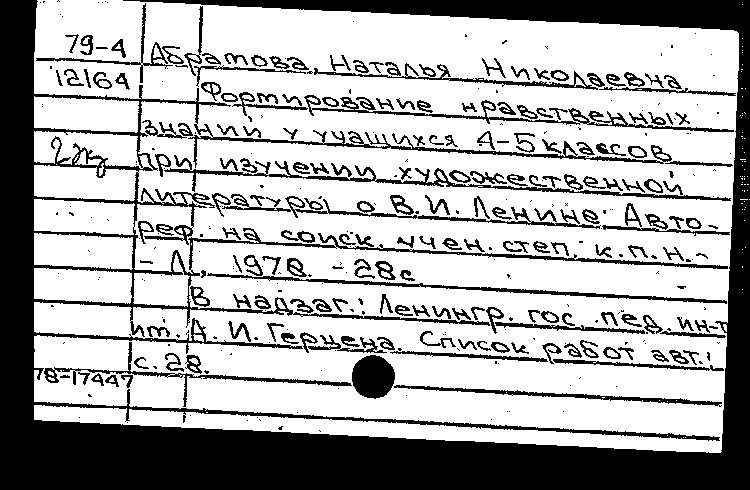 79-4 Абрамова, Наталья Николаевна.
12164 Формирование нравственных
знаний у учащихся 4-5 классов
при изучении художественной
литературы о В.И. Ленине: Авто-
реф. на соиск. учен. степ. к.п.н.-
- Л., 1978. - 28с.
В надзаг.: Ленингр. гос. пед. ин-т
им. А. И. Герцена. Список работ авт.:
с. 28.
78-17447